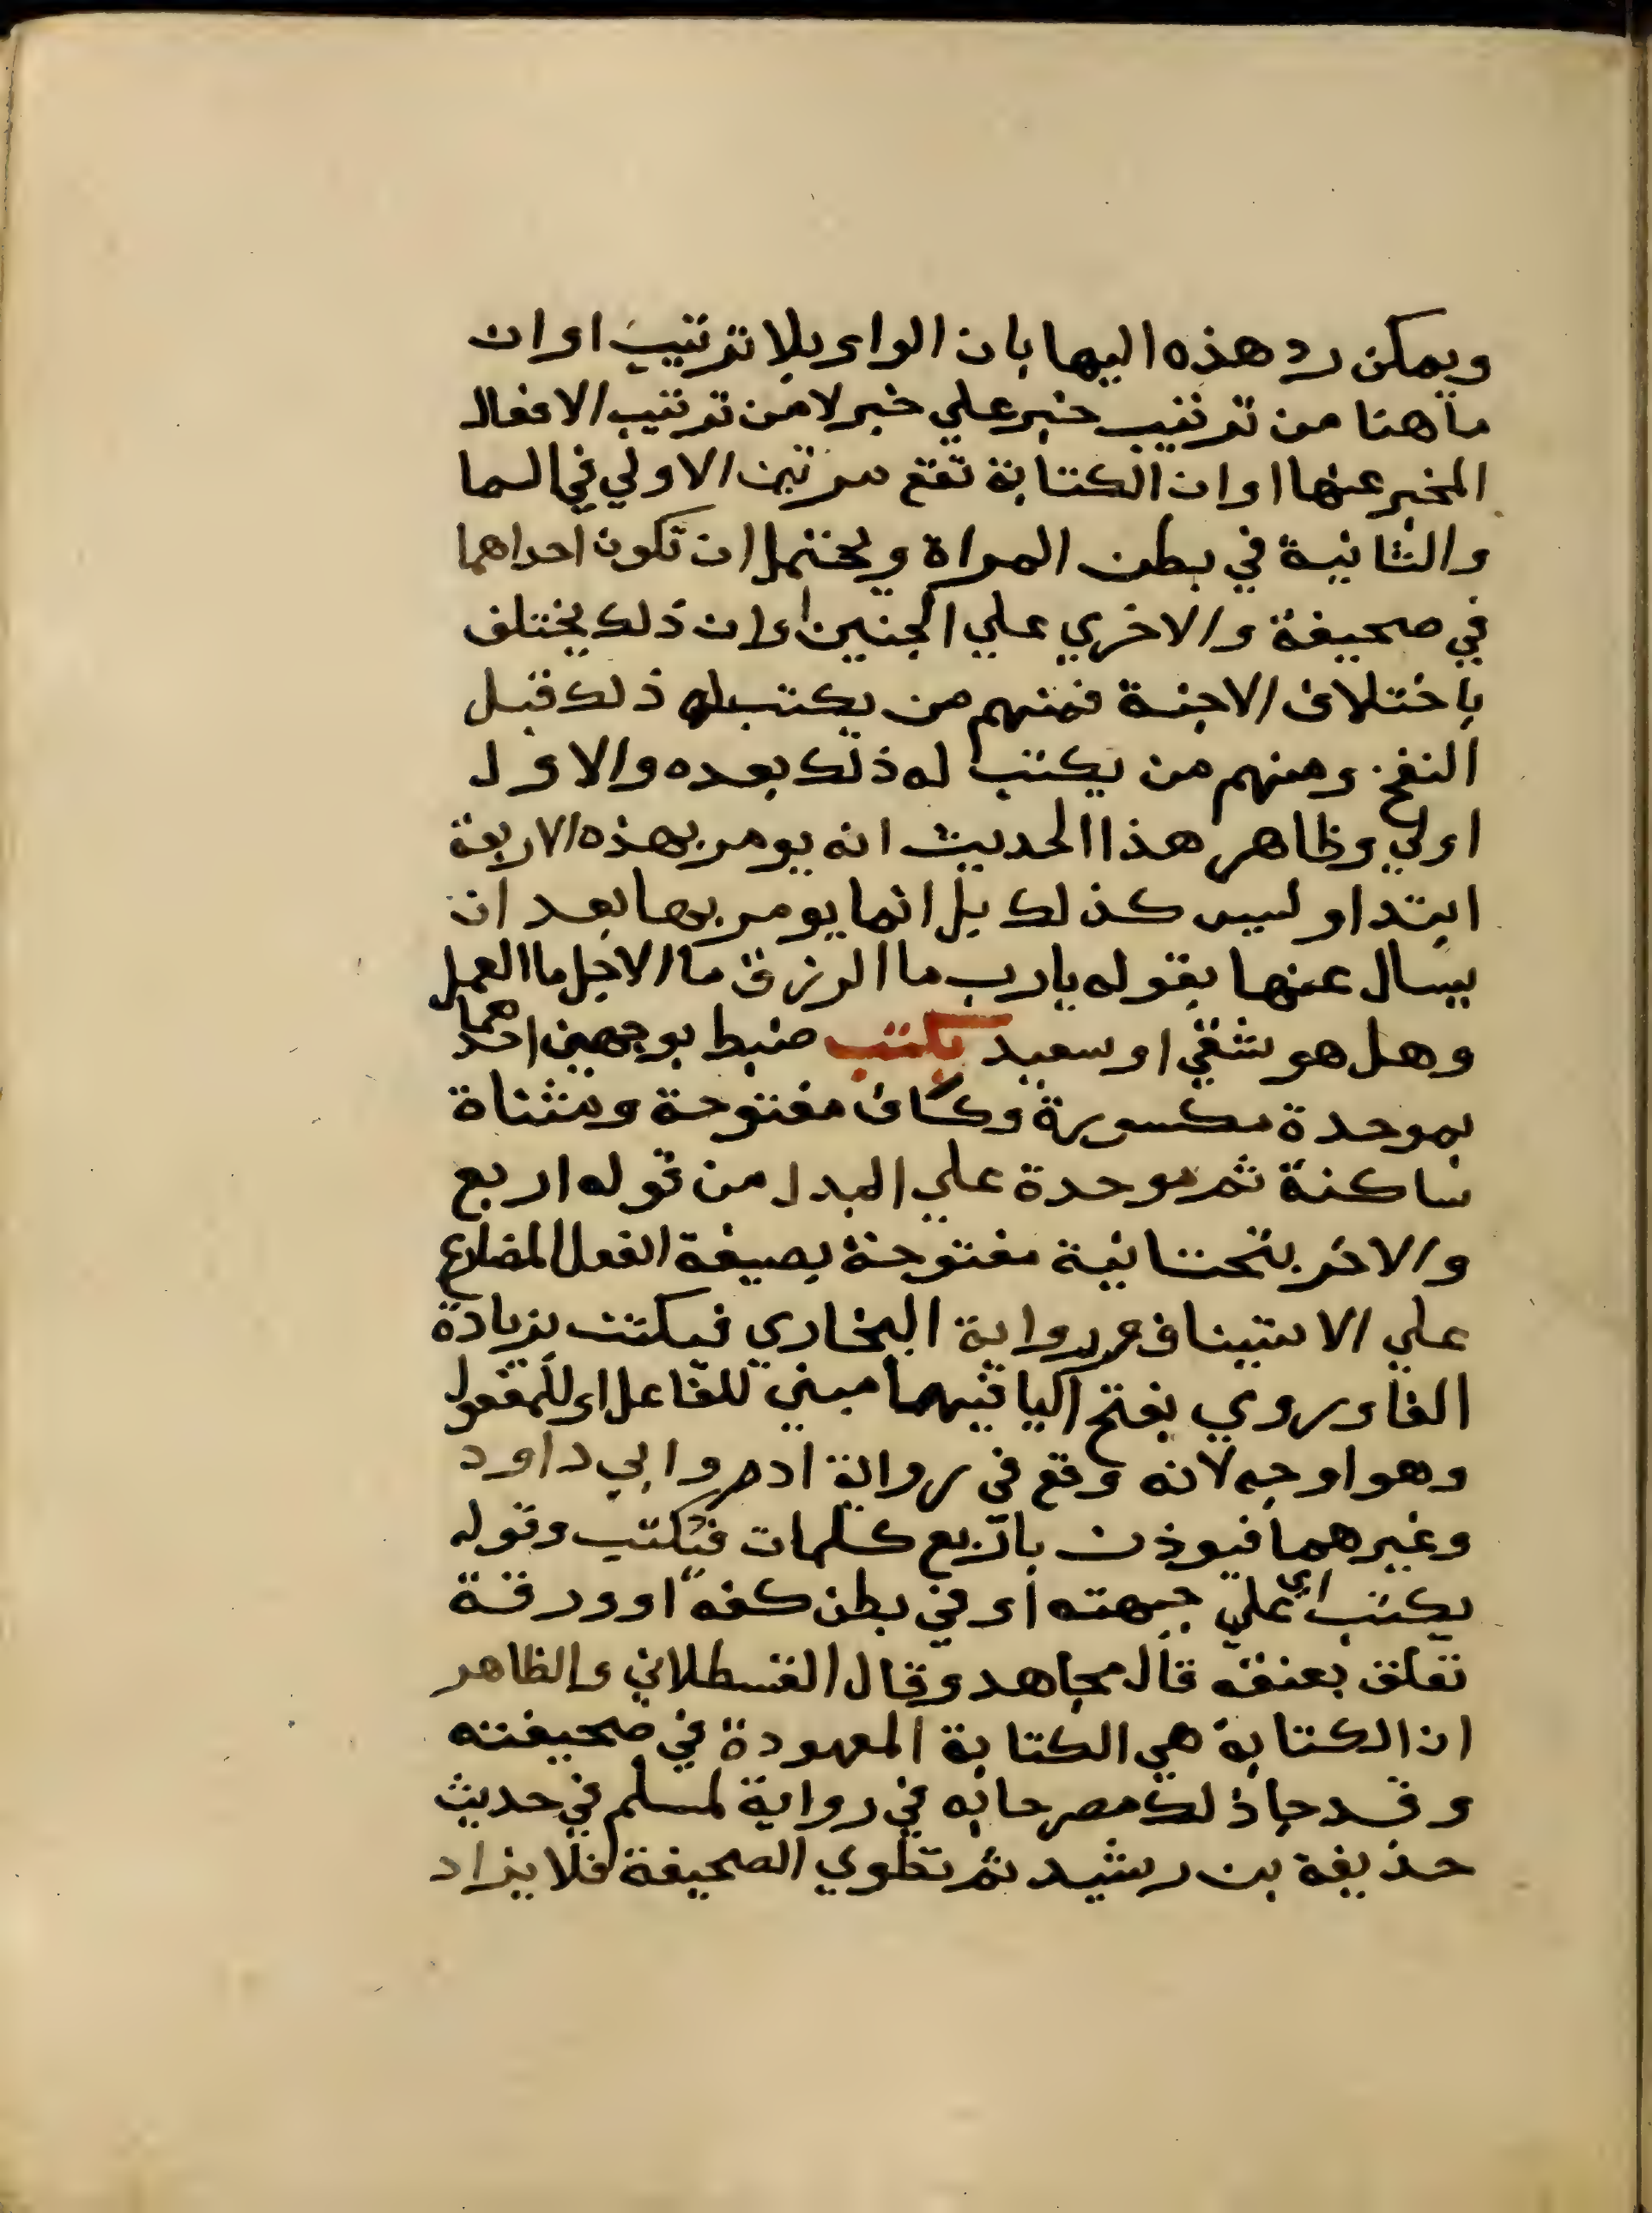 ويمكن رد هذه اليها بان الواو بلا ترتيب او ان
ما هنا من ترتيب خبر علي خبر لا من ترتيب الافعال
المخبر عنها او ان الكتابة تقع مرتين الاولي في السما
والثانية في بطن المراة ويحتمل ان تكون احداهما
في صحيفة والاخري علي الجنين او ان ذلك يختلف
باختلاف الاجنة فمنهم من يكتب له ذلك قبل
النفخ ومنهم من يكتب له ذلك بعده والاول
اولي وظاهر هذا الحديث انه يومر بهذه الاربعة
ابتدا وليس كذلك بل انما يومر بها بعد ان
يسال عنها بقوله يارب ما الرزق ما الاجل ما العمل
وهل هو شقي او سعيد بكتب ضبط بوجهين احدهما
بموحدة مكسورة وكاف مفتوحة ومثناة
ساكنة ثم موحدة علي البدل من قوله اربع
والاخر بتحتانية مفتوحة بصيغة الفعل المضارع
علي الاستيناف ورواية البخاري فيكتب بزيادة
الفا وروي بفتح اليا فيهما مبني للفاعل او للمفعول
وهو اوجه لانه وقع في رواية ادم وابي داود
وغيرهما فيوذن باربع كلمات فيكتب وقوله
يكتب اي علي جبهته او في بطن كفه او ورقة
تعلق بعنقه قال مجاهد وقال القسطلاني والظاهر
ان الكتابة هي الكتابة المعهودة في صحيفته
وقد جا ذلك مصرحا به في رواية لمسلم في حديث
حذيفة بن رشيد ثم تطوي الصحيفة فلا يزاد